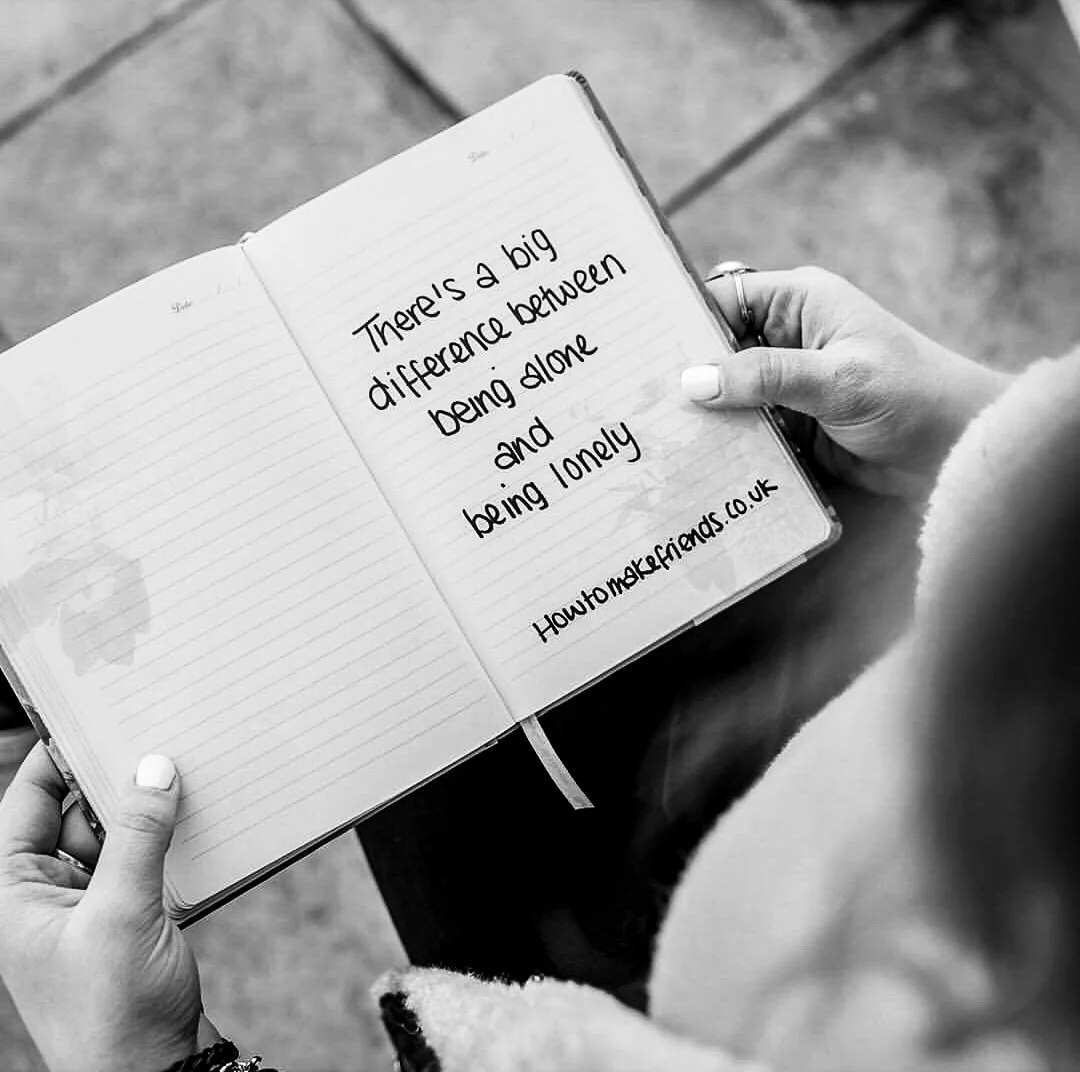 Date
Date
There's a big
difference between
being alone
and
being lonely
Howtomakefriends.co.uk